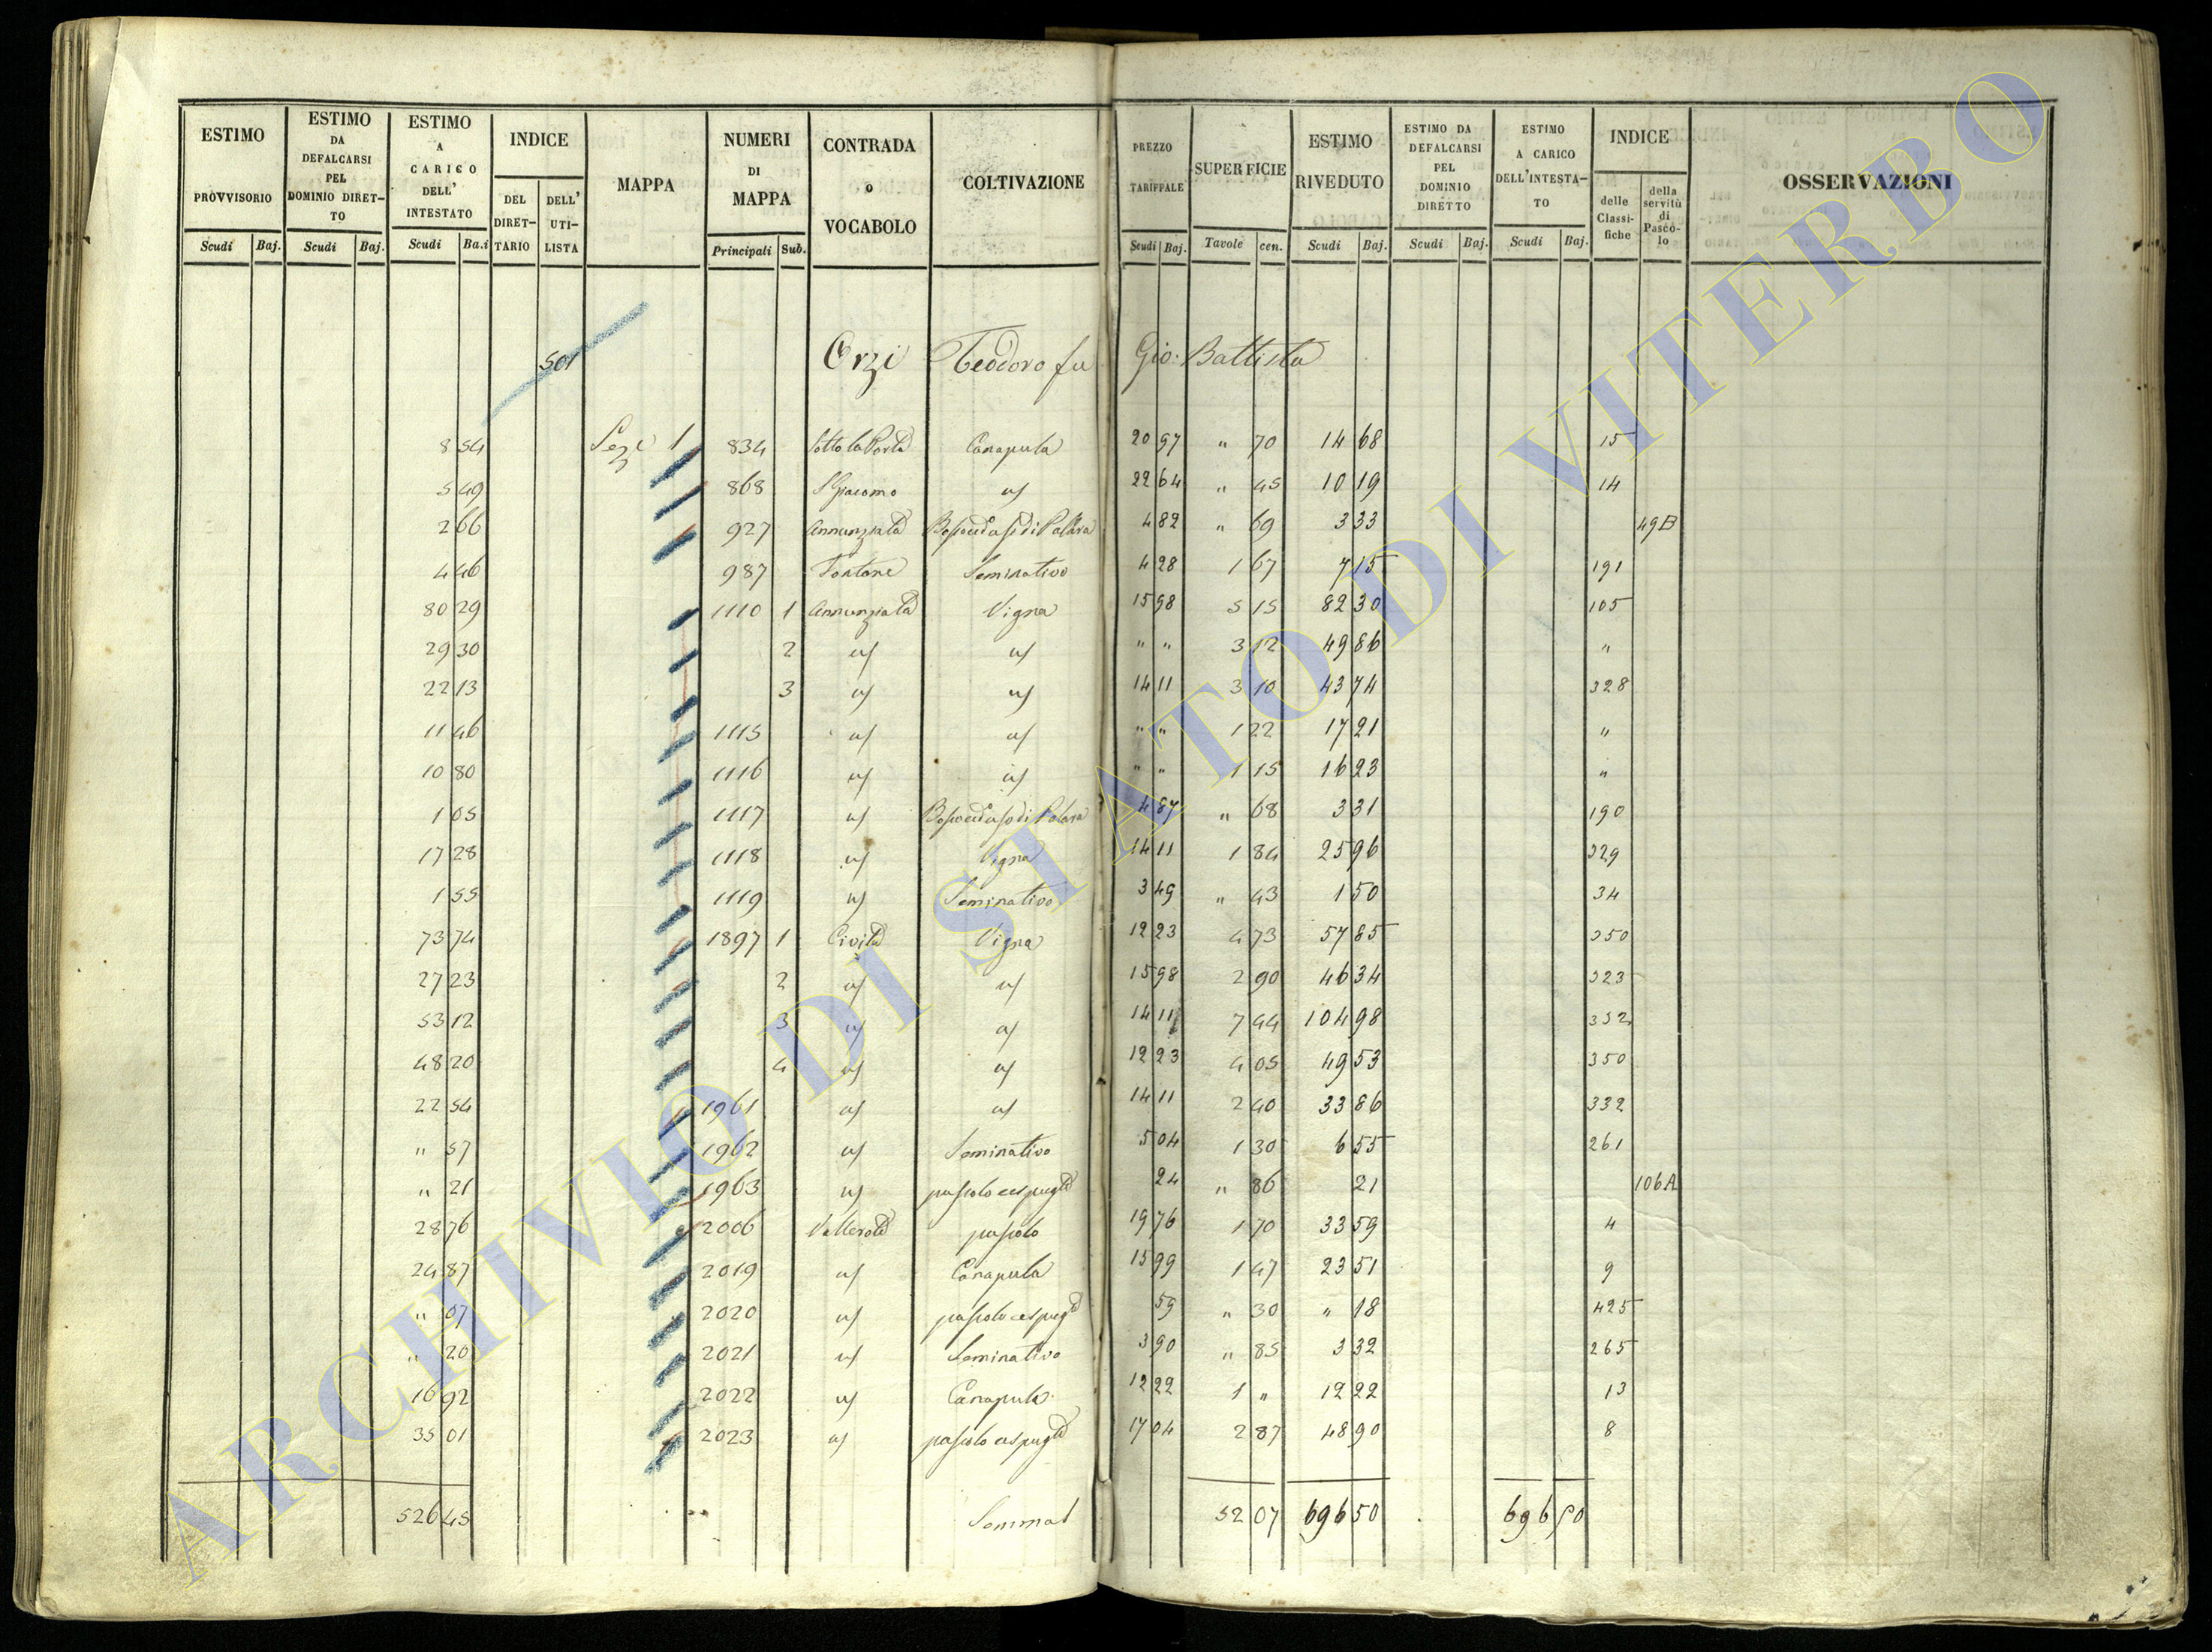 ESTIMO PROVVISORIO Scudi Baj. | ESTIMO DA DEFALCARSI PEL DOMINIO DIRET-TO Scudi Baj. | ESTIMO A CARICO DELL' INTESTATO Scudi Ba.i | INDICE DEL DIRET-TARIO DELL' UTI-LISTA | MAPPA | NUMERI DI MAPPA Principali Sub. | CONTRADA O VOCABOLO | COLTIVAZIONE | PREZZO TARIFFALE Scudi Baj. | SUPERFICIE Tavole cen. | ESTIMO RIVEDUTO Scudi Baj. | ESTIMO DA DEFALCARSI PEL DOMINIO DIRETTO Scudi Baj. | ESTIMO A CARICO DELL'INTESTA-TO Scudi Baj. | INDICE delle Classi-fiche della servitù di Pasco-lo | OSSERVAZIONI
501 Orzi Teodoro fu Gio: Battista
8 54 Sez.e 1 834 Sotto la Porta Canapula 20 97 " 70 14 68 15
5 49 868 S Giacomo u/ 22 64 " 45 10 19 14
2 66 927 Annunziata 4 82 " 69 3 33 49B
4 46 987 Fontane Seminativo 4 28 1 67 7 15 191
80 29 1110 1 Annunziata Vigna 15 98 5 15 82 30 105
29 30 2 u/ u/ " " 3 12 49 86 "
22 13 3 u/ u/ 14 11 3 10 43 74 328
11 46 1115 u/ u/ " " 1 22 17 21 "
10 80 1116 u/ u/ " " 1 15 16 23 "
1 05 1117 u/ 4 87 " 68 3 31 190
17 28 1118 u/ Vigna 14 11 1 84 25 96 329
1 55 1119 u/ Seminativo 3 49 " 43 1 50 34
73 74 1897 1 Civita Vigna 12 23 4 73 57 85 350
27 23 2 u/ u/ 15 98 2 90 46 34 323
53 12 3 u/ u/ 14 11 7 44 104 98 332
48 20 4 u/ u/ 12 23 4 05 49 53 350
22 54 1961 u/ u/ 14 11 2 40 33 86 332
" 57 1962 u/ Seminativo 5 04 1 30 6 55 261
" 21 1963 u/ pascolo cespugto 24 " 86 21 106A
28 76 2006 Vallerota pascolo 19 76 1 70 33 59 4
24 87 2019 u/ Canapula 15 99 1 47 23 51 9
" 07 2020 u/ pascolo cespugto 59 " 30 " 18 425
" 20 2021 u/ Seminativo 3 90 " 85 3 32 265
16 92 2022 u/ Canapula 12 22 1 " 12 22 13
35 01 2023 u/ pascolo cespugto 17 04 2 87 48 90 8
526 45 Somma 52 07 696 50 696 50
ARCHIVIO DI STATO DI VITERBO